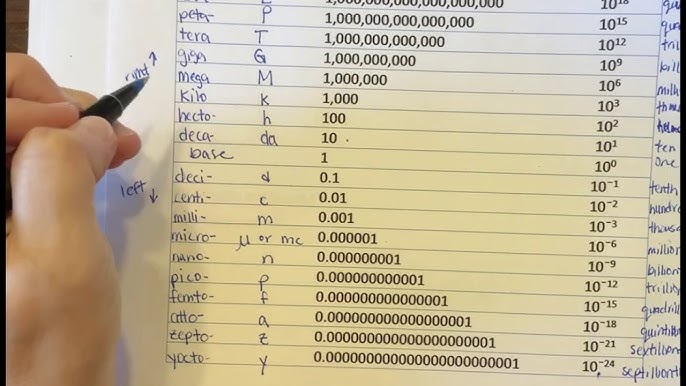 1,000,000,000,000,000,000 10^18
peta- P 1,000,000,000,000,000 10^15
tera T 1,000,000,000,000 10^12
giga G 1,000,000,000 10^9
mega M 1,000,000 10^6
right ↑
Kilo K 1,000 10^3
hecto- h 100 10^2
deca- da 10 10^1 ten
base 1 10^0 one
deci- d 0.1 10^-1 tenth
left ↓
centi- c 0.01 10^-2 hundre
milli- m 0.001 10^-3 thousa
micro- μ or mc 0.000001 10^-6 million
nano- n 0.000000001 10^-9 billion
pico- p 0.000000000001 10^-12 trillio
femto- f 0.000000000000001 10^-15 quadrill
atto- a 0.000000000000000001 10^-18 quintillion
zepto- z 0.000000000000000000001 10^-21 sextillion
yocto- y 0.000000000000000000000001 10^-24 septillionth